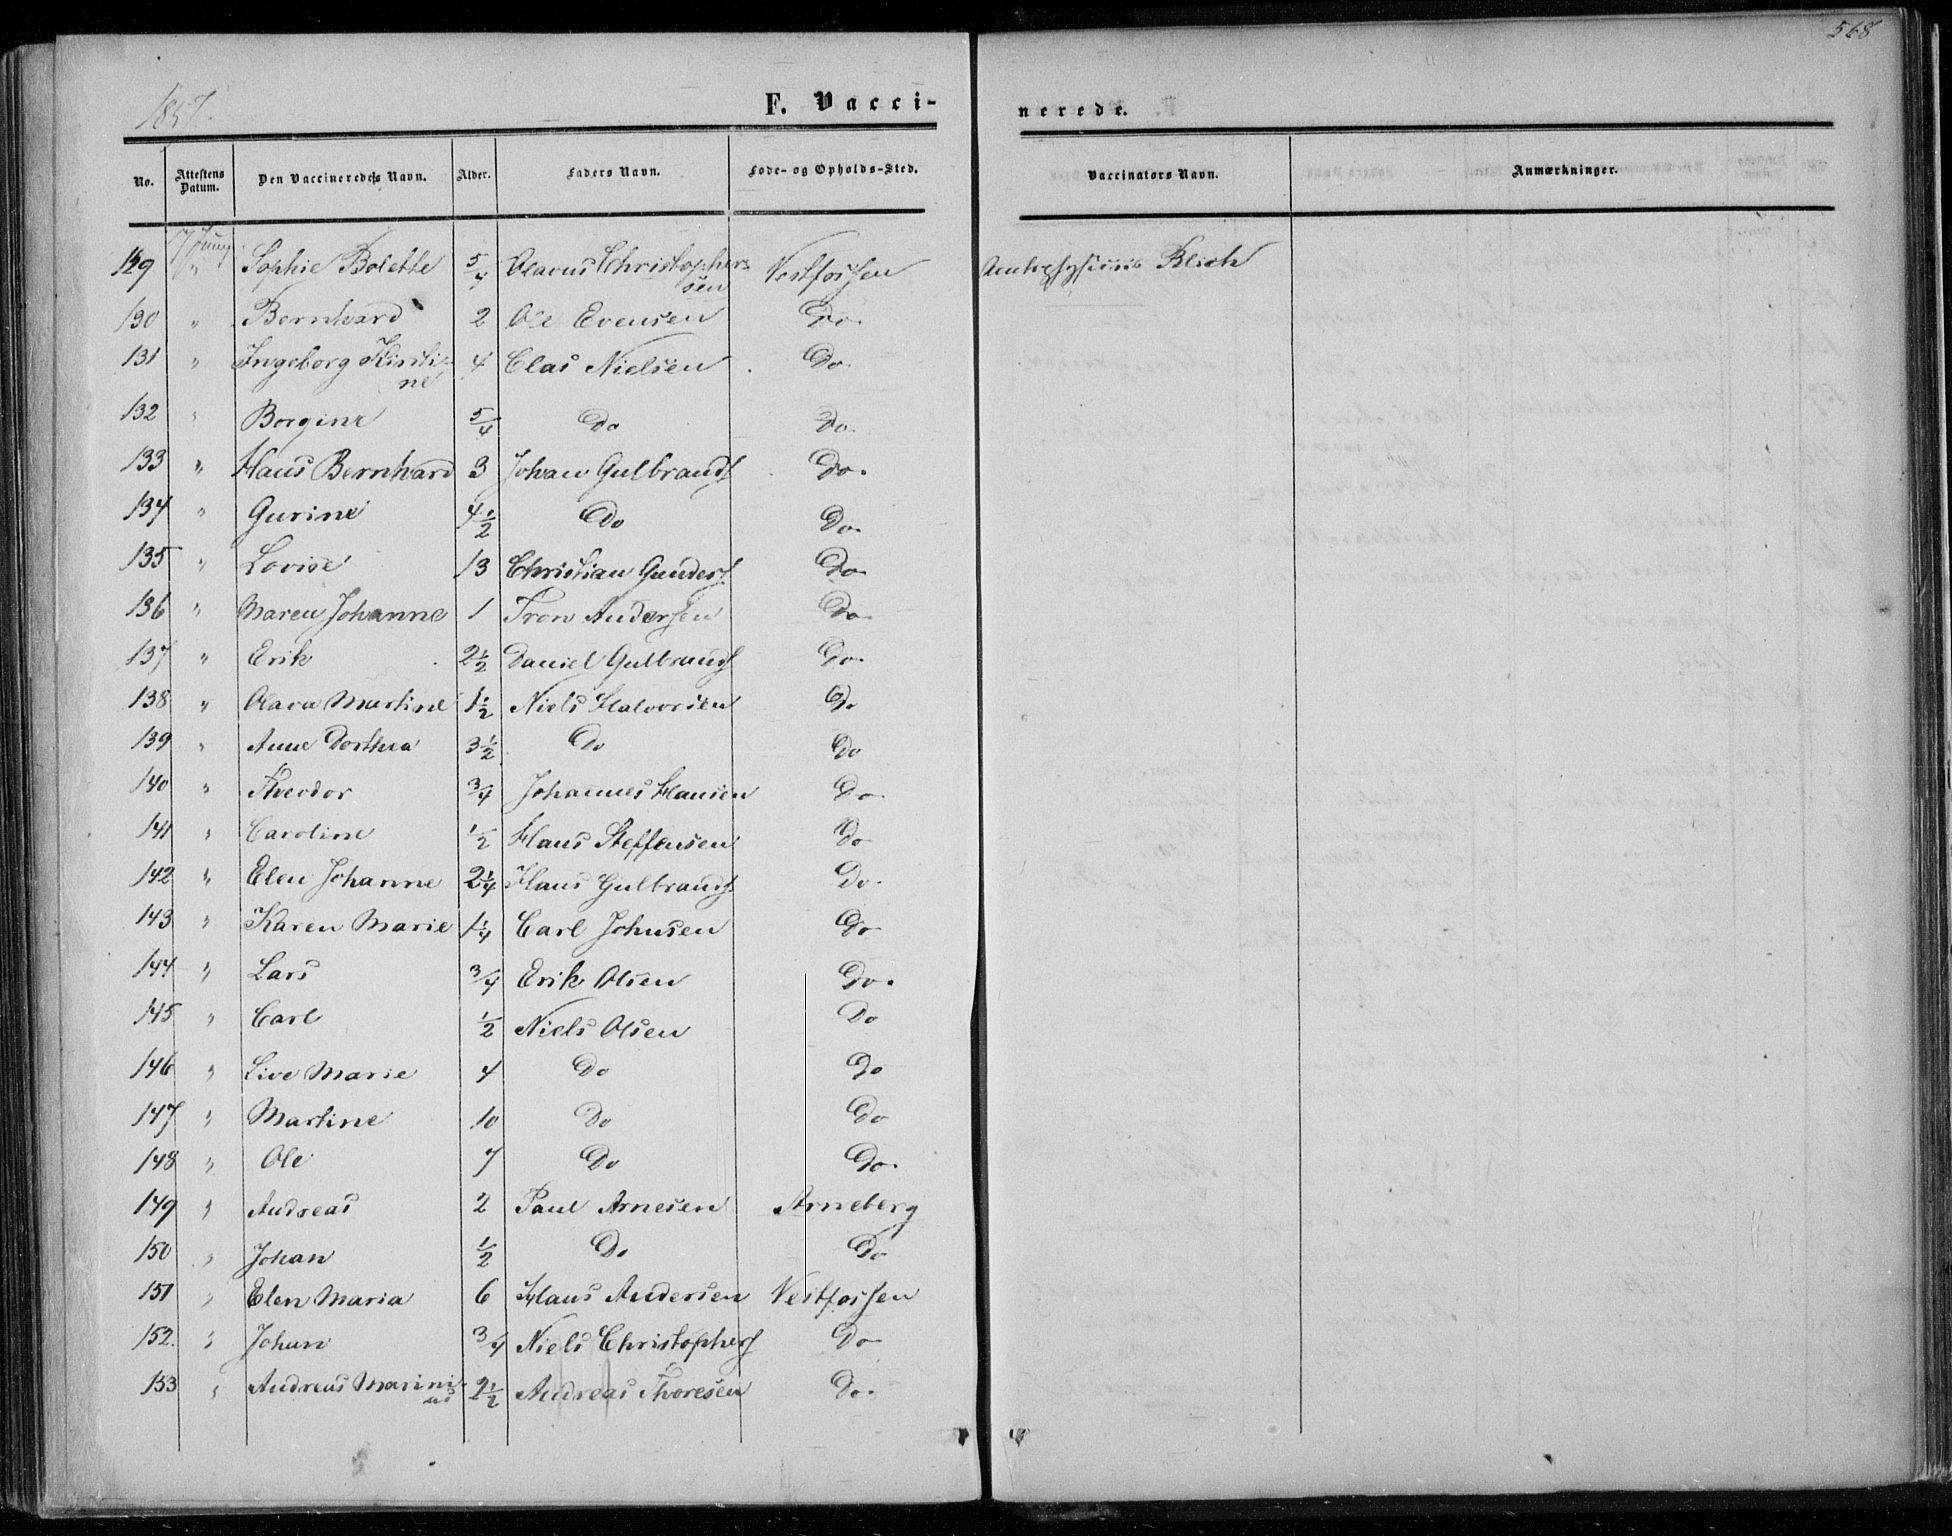 568
1857
F. Vacci-
nerede.
No. Attestens Datum. Den Vaccineredes Navn. Alder. Faders Navn. Føde- og Opholds-Sted. Vaccinators Navn. Anmærkninger.
129 17 Juny Sophie Bolette 5/4 Olavus Christopher- Vestfossen Blich
sen
130 " Bernhard 2 Ole Evensen Do.
131 " Ingeborg Kirsti- 4 Clas Nielsen Do.
ne
132 " Borgine 5/4 Do Do.
133 " Hans Bernhard 3 Johan Gulbrands. Do.
134 " Gurine 4 1/2 Do Do.
135 " Lovise 13 Christian Gunders. Do.
136 " Maren Johanne 1 Tron Andersen Do.
137 " Erik 2 1/2 Daniel Gulbrands. Do.
138 " Olava Martine 1 1/2 Niels Halvorsen Do
139 " Anne Dorthea 3 1/2 Do Do
140 " Theodor 3/4 Johannes Hansen Do.
141 " Caroline 1/2 Hans Steffensen Do
142 " Elen Johanne 2 1/4 Hans Gulbrands. Do.
143 " Karen Marie 1 1/4 Carl Johnsen Do
144 " Lars 3/4 Erik Olsen Do.
145 " Carl 1/2 Niels Olsen Do
146 " Live Marie 4 Do Do
147 " Martine 10 Do Do
148 " Ole 7 Do Do.
149 " Andreas 2 Paul Arnesen Arneberg
150 " Johan 1/2 Do Do
151 " Elen Maria 6 Hans Andersen Vestfossen
152. " Johan 3/4 Niels Christophers. Do
153 " Andreas Marini- 2 1/2 Andreas Thoresen Do.
us